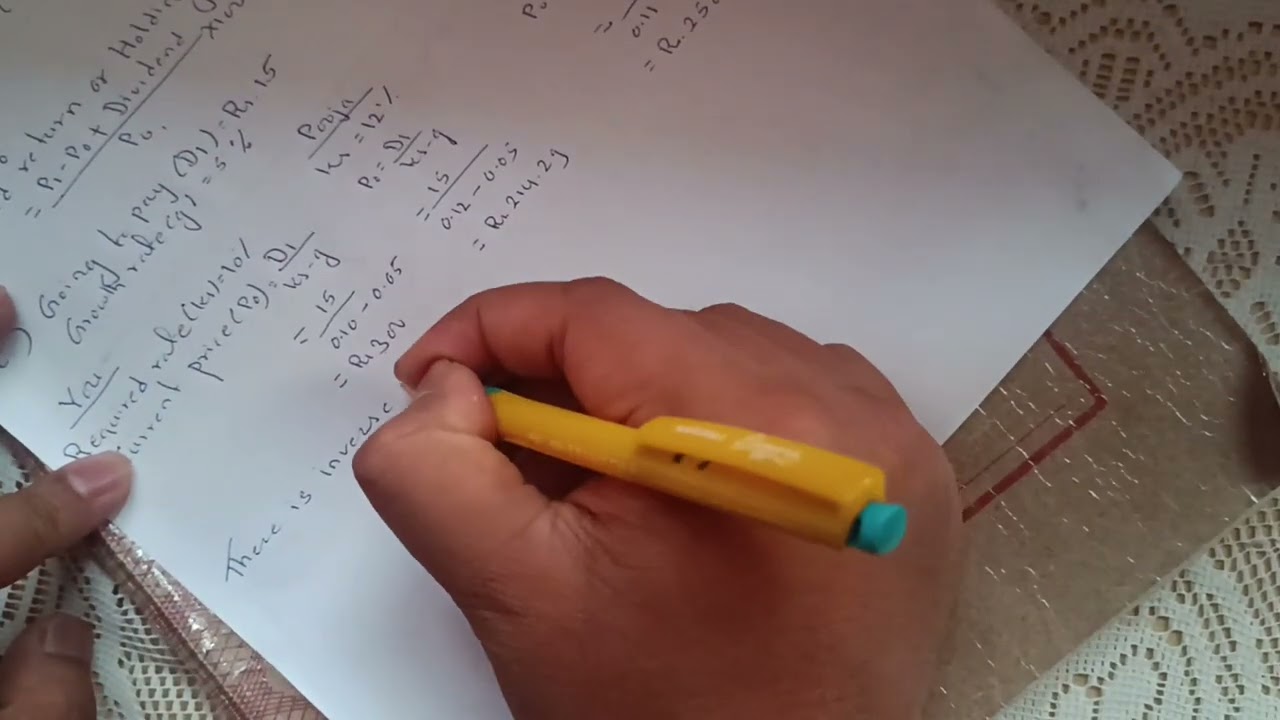 d return or Holdin
= P1 - P0 + Dividend x100
P0
Going to pay (D1) = Rs. 15
Growth rate (g) = 5%
You
Required rate (ks) = 10%
Current price (P0) = D1
ks-g
= 15
0.10 - 0.05
= Rs 300
Pooja
ks = 12%
P0 = D1
ks-g
= 15
0.12 - 0.05
= Rs. 214.29
P0
=
0.11
= Rs. 250
There is inverse